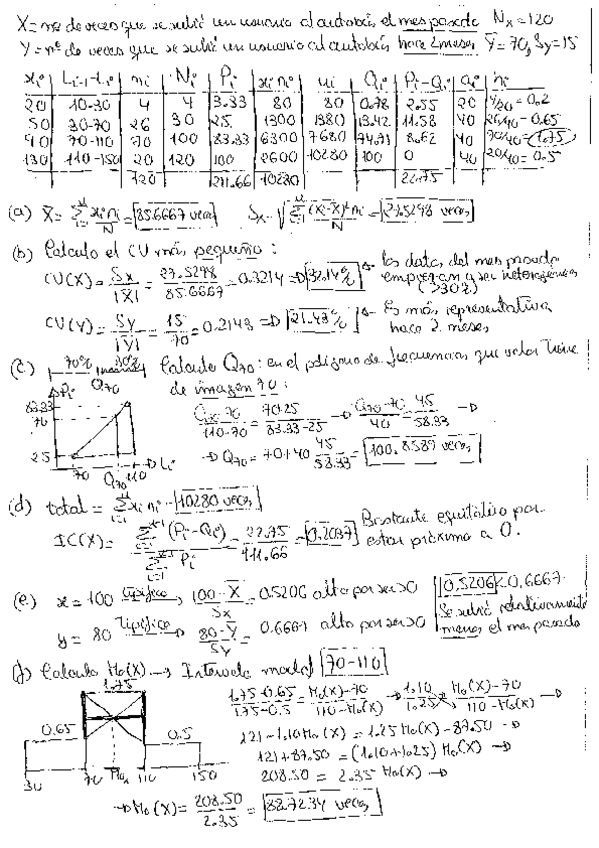 X= nº de veces que se subió un usuario al autobús el mes pasado Nx=120
Y= nº de veces que se subió un usuario al autobús hace 2 meses Ȳ=70, Sy=15
xi | Li-1-Li | ni | Ni | Pi | xini | ui | Qi | Pi-Qi | ai | hi
20 | 10-30 | 4 | 4 | 3.33 | 80 | 80 | 0.78 | 2.55 | 20 | 4/20=0.2
50 | 30-70 | 26 | 30 | 25 | 1300 | 1380 | 13.42 | 11.58 | 40 | 26/40=0.65
90 | 70-110 | 70 | 100 | 83.33 | 6300 | 7680 | 74.71 | 8.62 | 40 | 70/40=1.75
130 | 110-150 | 20 | 120 | 100 | 2600 | 10280 | 100 | 0 | 40 | 20/40=0.5
120 | 211.66 | 10280 | 22.75
(a) X̄ = Σ xini/N = 85.6667 veces Sx = √Σ(xi-x̄)²ni/N = 27.5298 veces
(b) Calculo el CV más pequeño:
CV(X) = Sx/|X̄| = 27.5298/85.6667 = 0.3214 => 32.14% ← los datos del mes pasado empiezan a ser heterogéneos (>30%)
CV(Y) = Sy/|Ȳ| = 15/70 = 0.2143 => 21.43% ← Es más representativa hace 2 meses
(c) 70% 30% Calculo Q70: en el polígono de frecuencias que valor tiene
Q70
de imagen 70:
Pi
83.33
70
25
70 Q70 110 Li
Q70-70/110-70 = 70-25/83.33-25 → Q70-70/40 = 45/58.33 →
→ Q70 = 70+40 45/58.33 = 100.8589 veces
(d) total = Σ xini = 10280 veces
IC(X) = Σ(Pi-Qi)/ΣPi = 22.75/111.66 = 0.2037 Bastante equitativo por estar próximo a 0.
(e) x = 100 tipifico → 100-X̄/Sx = 0.5206 alto por ser >0 0.5206<0.6667
y = 80 tipifico → 80-Ȳ/Sy = 0.6667 alto por ser >0 Se subió relativamente menos el mes pasado
(f) Calculo Mo(X) → Intervalo modal 70-110
1.75
0.65
0.5
30 70 Mox 110 150
1.75-0.65/1.75-0.5 = Mo(X)-70/110-Mo(X) → 1.10/1.25 = Mo(X)-70/110-Mo(X) →
121-1.10Mo(X) = 1.25Mo(X)-87.50 →
121+87.50 = (1.10+1.25) Mo(X) →
208.50 = 2.35 Mo(X) →
→ Mo(X) = 208.50/2.35 = 88.7234 veces